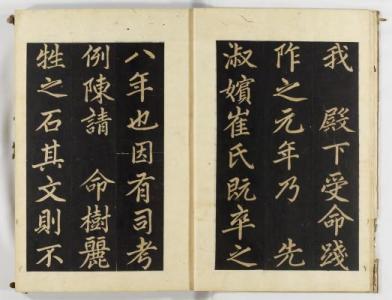 我　殿下受命踐
阼之元年乃　先
淑嬪崔氏既卒之
八年也因有司考
例陳請　命樹麗
牲之石其文則不